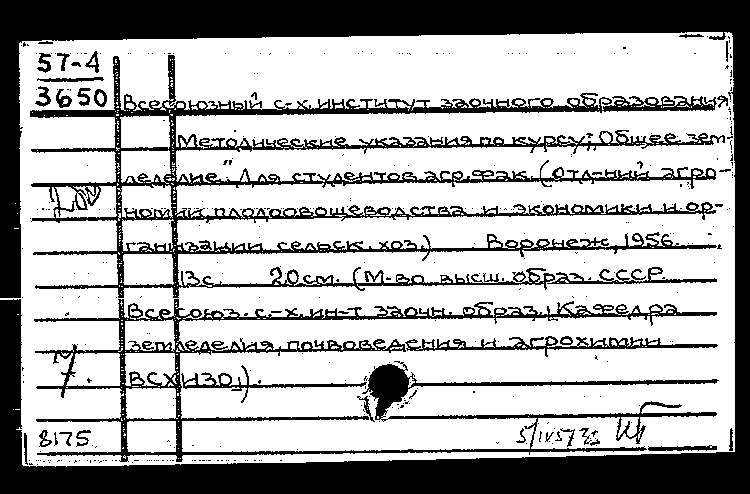 57-4
3650
Всесоюзный с-х. институт заочного образования
Методические указания по курсу „Общее зем-
леделие". Для студентов агр. фак. (отд-ний агро-
номии, плодоовощеводства и экономики и ор-
ганизации сельск. хоз.) Воронеж, 1956.
13с. 20см. (М-во высш. образ. СССР.
Всесоюз. с.-х. ин-т заочн. образ. Кафедра
земледелия, почвоведения и агрохимии
ВСХИЗО).
8175